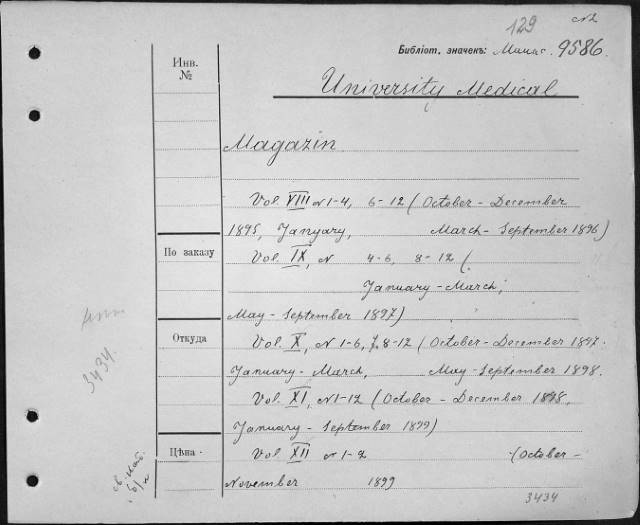 129
Библіот. значекъ: 9586.
Инв.
№
University Medical
Magazin
Vol. VIII N 1-4, 6-12 (October - December
1895, Janyary, March - September 1896)
По заказу
Vol. IX, N 4-6, 8-12 (
January - March;
May - September 1897)
Откуда
Vol. X, N 1-6, 7, 8-12 (October - December 1897.
January - March, May - September 1898.
Vol. XI, N 1-12 (October - December 1898,
January - September 1899)
Цѣна
Vol XII N 1-2 (October -
November 1899
3434.
3434